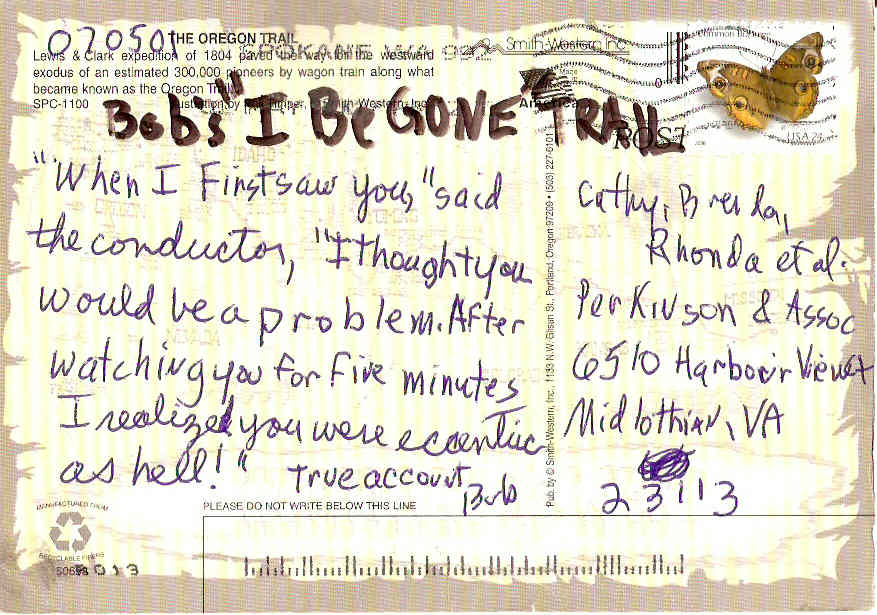 070501
THE OREGON TRAIL
Lewis & Clark expedition of 1804 paved the way for the westward
exodus of an estimated 300,000 pioneers by wagon train along what
became known as the Oregon Trail.
SPC-1100 Illustration by Smith-Western, Inc.
SPOKANE WA 992
Smith-Western Inc
Made
America
POST
USA 24
Bobs "I Be GONE" TRAIL
"When I First saw you," said
the conductor, "I thought you
would be a problem. After
watching you for five minutes
I realized you were eccentric
as hell!" True account
Bob
Pub. by © Smith-Western, Inc. 1133 N.W. Glisan St., Portland, Oregon 97209 • (503) 227-6101
Cathy, Brenda,
Rhonda et al.
Perkinson & Assoc
6510 Harbour View Ct
Midlothian, VA
23113
MANUFACTURED FROM
RECYCLABLE FIBERS
PLEASE DO NOT WRITE BELOW THIS LINE